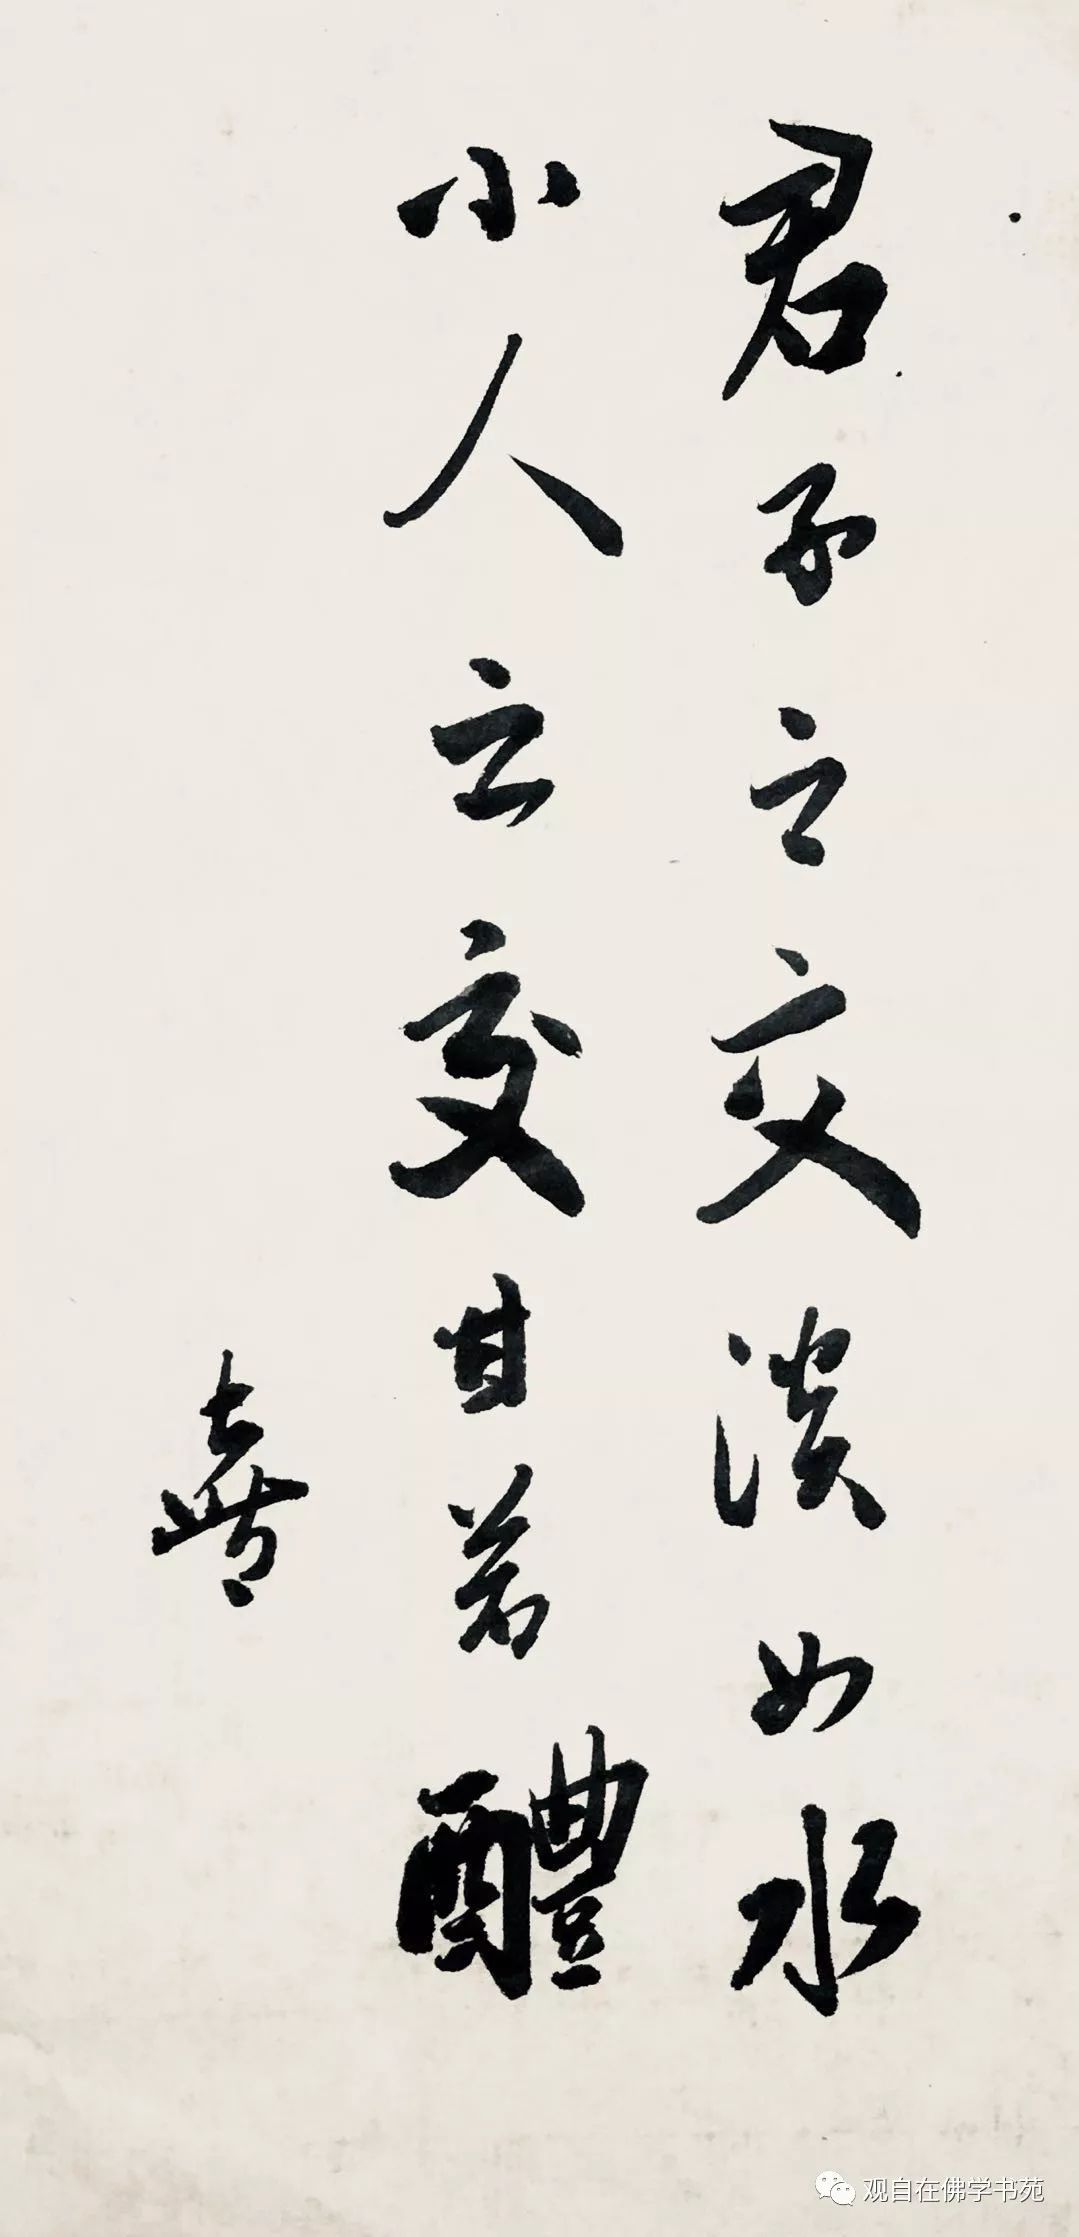 君子之交淡如水
小人之交甘若醴
喜
观自在佛学书苑